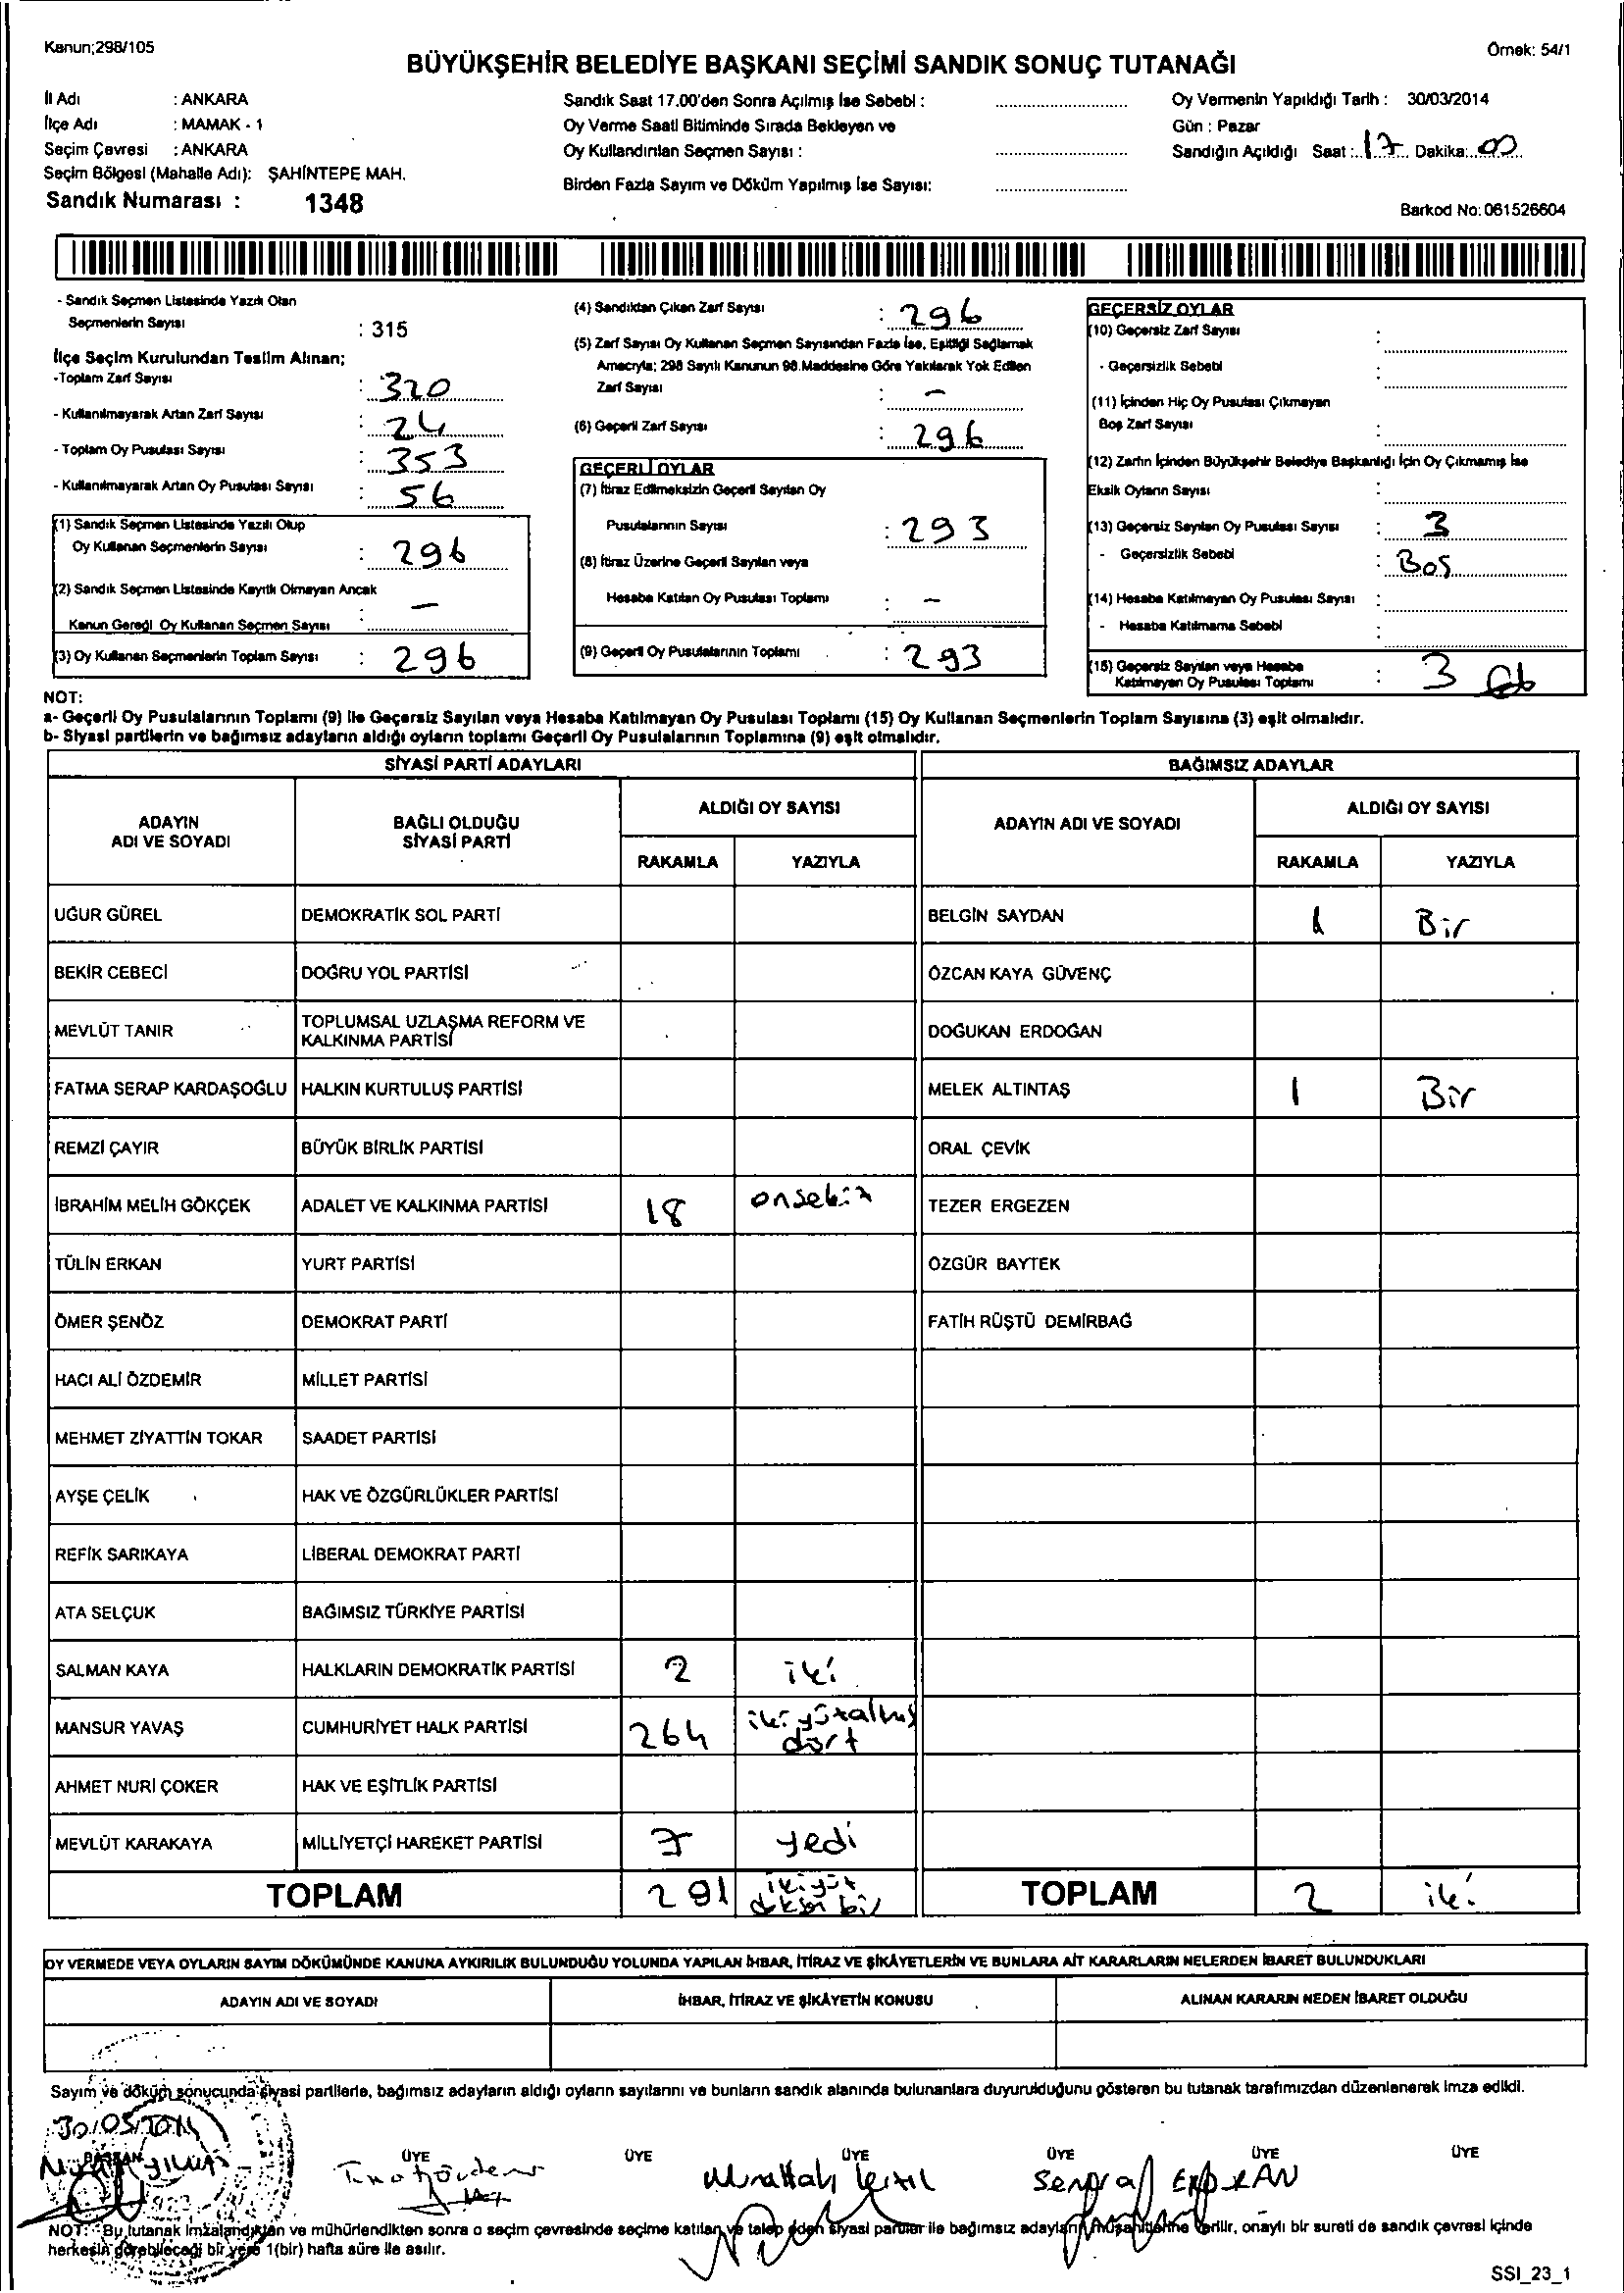 Kanun;298/105
Örnek: 54/1
BÜYÜKŞEHİR BELEDİYE BAŞKANI SEÇİMİ SANDIK SONUÇ TUTANAĞI
İl Adı : ANKARA
İlçe Adı : MAMAK - 1
Seçim Çevresi : ANKARA
Seçim Bölgesi (Mahalle Adı): ŞAHİNTEPE MAH.
Sandık Numarası : 1348
Sandık Saat 17.00'den Sonra Açılmış İse Sebebi :
Oy Verme Saati Bitiminde Sırada Bekleyen ve
Oy Kullandırılan Seçmen Sayısı :
Birden Fazla Sayım ve Döküm Yapılmış İse Sayısı:
Oy Vermenin Yapıldığı Tarih : 30/03/2014
Gün : Pazar
Sandığın Açıldığı Saat : 17 Dakika: 00
Barkod No: 061526604
- Sandık Seçmen Listesinde Yazılı Olan
Seçmenlerin Sayısı : 315
İlçe Seçim Kurulundan Teslim Alınan;
-Toplam Zarf Sayısı : 320
- Kullanılmayarak Artan Zarf Sayısı : 24
- Toplam Oy Pusulası Sayısı : 353
- Kullanılmayarak Artan Oy Pusulası Sayısı : 56
(1) Sandık Seçmen Listesinde Yazılı Olup
Oy Kullanan Seçmenlerin Sayısı : 296
(2) Sandık Seçmen Listesinde Kayıtlı Olmayan Ancak
Kanun Gereği Oy Kullanan Seçmen Sayısı : -
(3) Oy Kullanan Seçmenlerin Toplam Sayısı : 296
(4) Sandıktan Çıkan Zarf Sayısı : 296
(5) Zarf Sayısı Oy Kullanan Seçmen Sayısından Fazla İse, Eşitliği Sağlamak
Amacıyla; 298 Sayılı Kanunun 98.Maddesine Göre Yakılarak Yok Edilen
Zarf Sayısı : -
(6) Geçerli Zarf Sayısı : 296
GEÇERLİ OYLAR
(7) İtiraz Edilmeksizin Geçerli Sayılan Oy
Pusulalarının Sayısı : 293
(8) İtiraz Üzerine Geçerli Sayılan veya
Hesaba Katılan Oy Pusulası Toplamı : -
(9) Geçerli Oy Pusulalarının Toplamı : 293
GEÇERSİZ OYLAR
(10) Geçersiz Zarf Sayısı :
- Geçersizlik Sebebi :
(11) İçinden Hiç Oy Pusulası Çıkmayan
Boş Zarf Sayısı :
(12) Zarfın İçinden Büyükşehir Belediye Başkanlığı İçin Oy Çıkmamış İse
Eksik Oyların Sayısı :
(13) Geçersiz Sayılan Oy Pusulası Sayısı : 3
- Geçersizlik Sebebi : Boş
(14) Hesaba Katılmayan Oy Pusulası Sayısı :
- Hesaba Katılmama Sebebi :
(15) Geçersiz Sayılan veya Hesaba
Katılmayan Oy Pusulası Toplamı : 3
NOT:
a- Geçerli Oy Pusulalarının Toplamı (9) ile Geçersiz Sayılan veya Hesaba Katılmayan Oy Pusulası Toplamı (15) Oy Kullanan Seçmenlerin Toplam Sayısına (3) eşit olmalıdır.
b- Siyasi partilerin ve bağımsız adayların aldığı oyların toplamı Geçerli Oy Pusulalarının Toplamına (9) eşit olmalıdır.
SİYASİ PARTİ ADAYLARI BAĞIMSIZ ADAYLAR
ADAYIN
ADI VE SOYADI
BAĞLI OLDUĞU
SİYASİ PARTİ
ALDIĞI OY SAYISI
RAKAMLA YAZIYLA
ADAYIN ADI VE SOYADI
ALDIĞI OY SAYISI
RAKAMLA YAZIYLA
UĞUR GÜREL DEMOKRATİK SOL PARTİ BELGİN SAYDAN 1 Bir
BEKİR CEBECİ DOĞRU YOL PARTİSİ ÖZCAN KAYA GÜVENÇ
MEVLÜT TANIR TOPLUMSAL UZLAŞMA REFORM VE
KALKINMA PARTİSİ DOĞUKAN ERDOĞAN
FATMA SERAP KARDAŞOĞLU HALKIN KURTULUŞ PARTİSİ MELEK ALTINTAŞ 1 Bir
REMZİ ÇAYIR BÜYÜK BİRLİK PARTİSİ ORAL ÇEVİK
İBRAHİM MELİH GÖKÇEK ADALET VE KALKINMA PARTİSİ 18 onsekiz TEZER ERGEZEN
TÜLİN ERKAN YURT PARTİSİ ÖZGÜR BAYTEK
ÖMER ŞENÖZ DEMOKRAT PARTİ FATİH RÜŞTÜ DEMİRBAĞ
HACI ALİ ÖZDEMİR MİLLET PARTİSİ
MEHMET ZİYATTİN TOKAR SAADET PARTİSİ
AYŞE ÇELİK HAK VE ÖZGÜRLÜKLER PARTİSİ
REFİK SARIKAYA LİBERAL DEMOKRAT PARTİ
ATA SELÇUK BAĞIMSIZ TÜRKİYE PARTİSİ
SALMAN KAYA HALKLARIN DEMOKRATİK PARTİSİ 2 iki
MANSUR YAVAŞ CUMHURİYET HALK PARTİSİ 264 ikiyüzaltmış
dört
AHMET NURİ ÇOKER HAK VE EŞİTLİK PARTİSİ
MEVLÜT KARAKAYA MİLLİYETÇİ HAREKET PARTİSİ 7 yedi
TOPLAM 291 ikiyüz
doksan bir TOPLAM 2 iki
OY VERMEDE VEYA OYLARIN SAYIM DÖKÜMÜNDE KANUNA AYKIRILIK BULUNDUĞU YOLUNDA YAPILAN İHBAR, İTİRAZ VE ŞİKÂYETLERİN VE BUNLARA AİT KARARLARIN NELERDEN İBARET BULUNDUKLARI
ADAYIN ADI VE SOYADI İHBAR, İTİRAZ VE ŞİKÂYETİN KONUSU ALINAN KARARIN NEDEN İBARET OLDUĞU
Sayım ve döküm sonucunda siyasi partilerle, bağımsız adayların aldığı oyların sayılarını ve bunların sandık alanında bulunanlara duyurulduğunu gösteren bu tutanak tarafımızdan düzenlenerek imza edildi.
BAŞKAN ÜYE ÜYE ÜYE ÜYE ÜYE ÜYE
NOT: Bu tutanak imzalandıktan ve mühürlendikten sonra o seçim çevresinde seçime katılan ve talep eden siyasi partiler ile bağımsız adayların müşahitlerine verilir, onaylı bir sureti de sandık çevresi içinde
herkesin görebileceği bir yere 1(bir) hafta süre ile asılır.
SSI_23_1